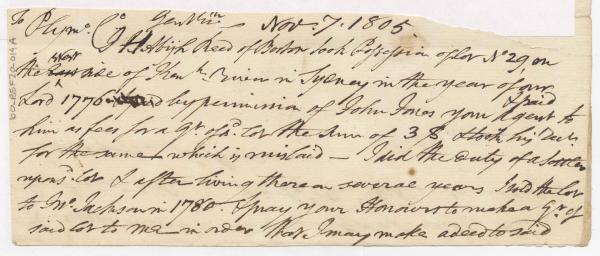 To Plymo. Co Gentlmn Nov. 7. 1805
I Abijh Reed of Boston took Possession of Lot No 29 on
the West side of Kenk. River in Sydney in the year of our
Lord 1776 by permission of John Jones your Agent & paid
him as fees for a Gt. of sd. Lot the sum of 3 $ & took his Recit.
for the same which is mislaid — I did the duty of a settler
upon sd. Lot & after living thereon several years I sold the Lot
to Jno. Jackson in 1780. I pray your Honours to make a Gt. of
said Lot to me in order that I may make a deed to said